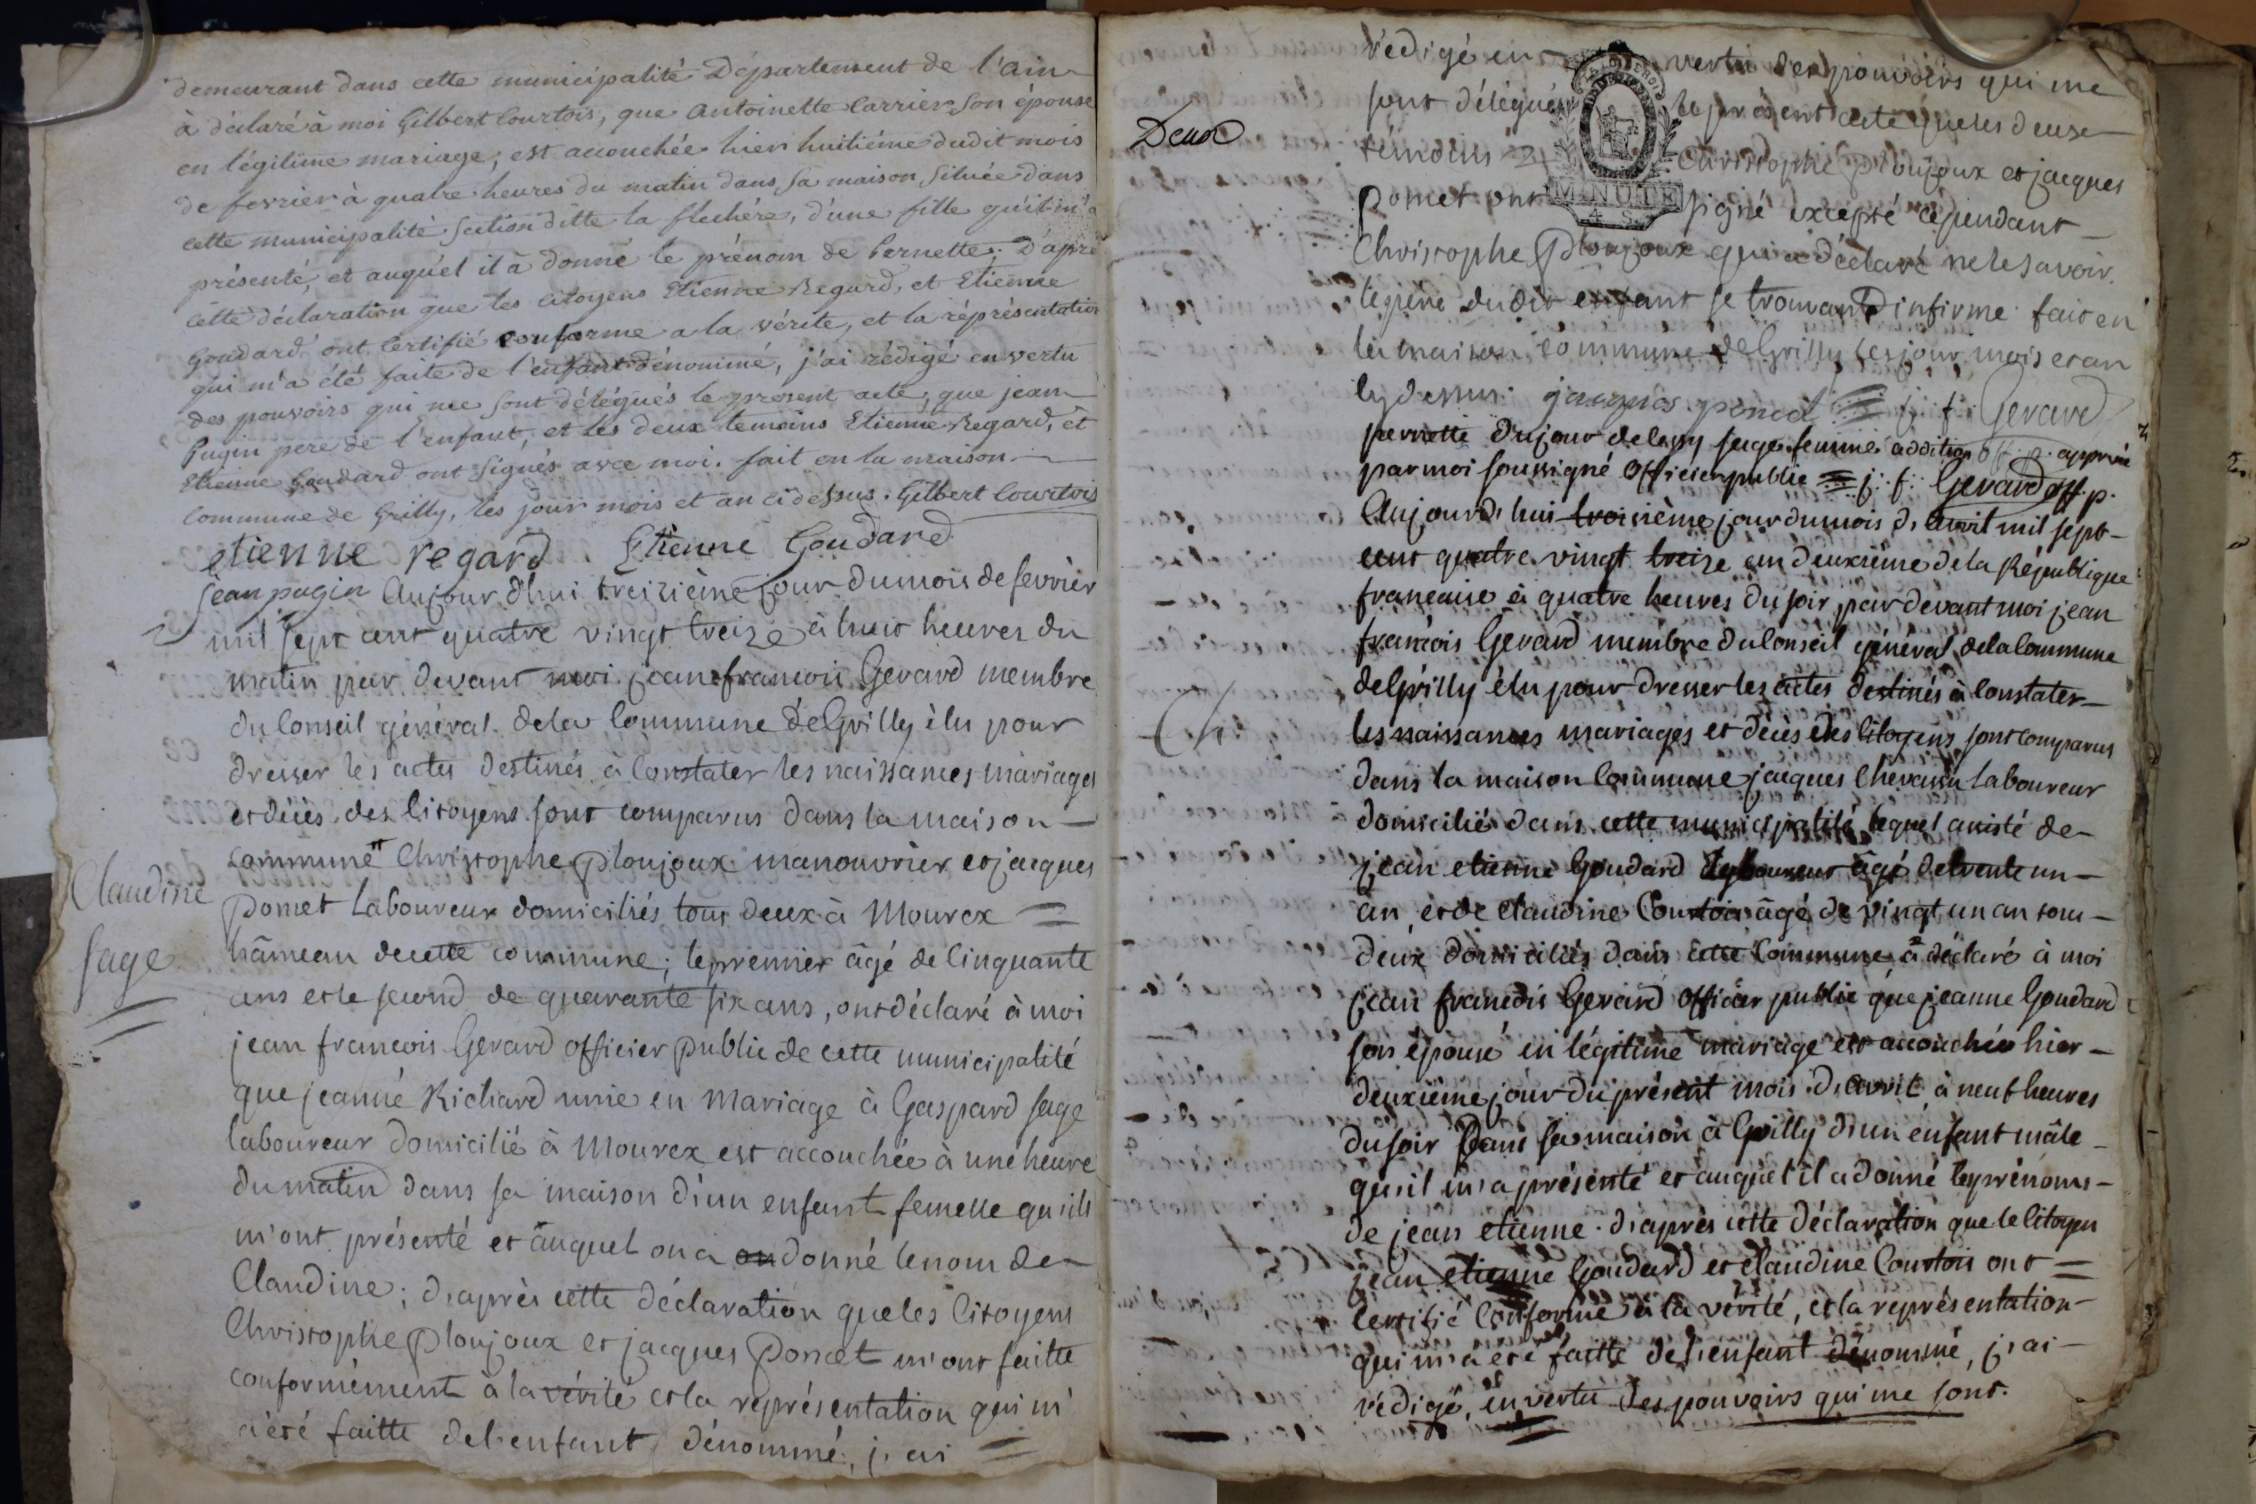 demeurant dans cette municipalité Département de l'ain
à déclaré à moi Gilbert Courtois, que Antoinette Carrier son épouse
en légitime mariage, est accouchée hier huitième dudit mois
de fevrier à quatre heures du matin dans sa maison, située dans
cette municipalité section ditte la flechére, d'une fille qu'il m'a
présenté, et auquel il à donné le prénom de Pernette; D'apré
cette déclaration que les citoyens Etienne Regard, et Etienne
Goudard ont Certifié conforme a la vérite, et la réprésentation
qui m'a été faite de l'enfant dénommé, j'ai rédigé en vertu
des pouvoirs qui me sont délégués le present acte, que jean
Pugin pere de l'enfant, et les deux temoins Etienne Regard, et
Etienne Goudard ont signés avec moi. fait en la maison
Commune de Grilly, les jour mois et an ci dessus. Gilbert Courtois
etienne regard Etienne Goudard
jean pugin Aujour d'hui treizième jour du mois de fevrier
mil sept cent quatre vingt treize à huit heures du
matin par devant moi jean francois Gerard membre
du Conseil général de la Commune de Grilly élu pour
dresser les actes destinés à Constater les naissances mariages
et décès des Citoyens sont comparus dans la maison
commune Christophe Ploujoux manouvrier et jacques
Claudine
Poncet Laboureur domiciliés tous deux à Mourex
sage
hâmeau de cette commune; le premier âgé de Cinquante
ans et le second de quarante six ans, ont déclaré à moi
jean francois Gerard officier public de cette municipalité
que jeanne Richard unie en mariage à Gaspard sage
laboureur domicilié à Mourex est accouchée à une heure
du matin dans sa maison d'un enfant femelle qu'ils
m'ont présenté et auquel on a on donné le nom de
Claudine; d'après cette déclaration que les Citoyens
Christophe Ploujoux et jacques Poncet m'ont faitte
conformément à la vérité et la représentation qui m'
a été faitte de l'enfant dénommé, j'ai
rédigé en vertu des pouvoirs qui me
sont délégués le présent acte que les deux
Deux
témoins Christophe Ploujoux et jacques
MINUTE
4 S
Poncet ont signé excepté cependant
Christophe Ploujoux qui a déclaré ne le savoir.
le père dudit enfant se trouvant infirme fait en
la maison commune de Grilly les jour mois et an
cy dessus. jacques poncet j. f. Gerard
pernette dujour delessy sage femme addition approuvé
par moi soussigné officier public j. f. Gerard off. p.
Aujourd'hui troisième jour du mois d'avril mil sept
cent quatre vingt treize an deuxième de la République
francaise à quatre heures du soir, par devant moi jean
francois Gerard membre du Conseil général de la Commune
de Grilly élu pour dresser les actes destinés à Constater
les naissances mariages et décès des Citoyens sont comparus
dans la maison Commune jacques Chevassu Laboureur
domicilié dans cette municipalité lequel assisté de
jean etienne Goudard Laboureur âgé de trente un
an et de Claudine Courtois âgé de vingt un an tous
deux domiciliés dans cette Commune a déclaré à moi
jean francois Gerard officier public que jeanne Goudard
son épouse en légitime mariage est accouchée hier
deuxième jour du présent mois d'avril à neuf heures
du soir Dans sa maison à Grilly d'un enfant mâle
qu'il m'a présenté et auquel il a donné les prénoms
de jean etienne. d'après cette déclaration que le Citoyen
jean etienne Goudard et Claudine Courtois ont
Certifié Conforme à la vérité, et la représentation
qui m'a été faitte de l'enfant dénommé, j'ai
rédigé, en vertu des pouvoirs qui me sont.